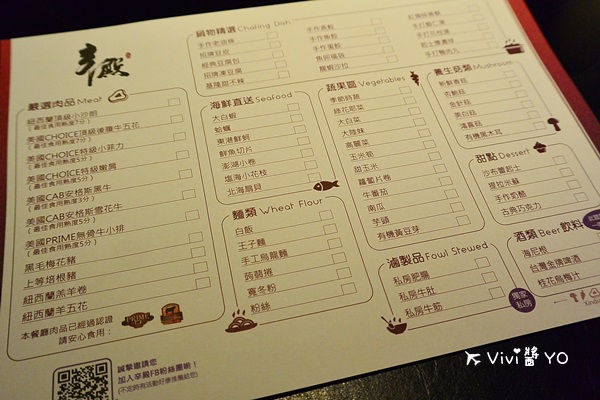 辛殿
鍋物精選 Chafing Dish
手作老油條
招牌豆皮
經典豆腐包
招牌凍豆腐
基隆甜不辣
手作燕餃
手作魚餃
手作蛋餃
魚卵福袋
龍蝦沙拉
手作蝦仁漿
手作花枝漿
起士雙濃球
手作鴨肉丸
嚴選肉品 Meat
紐西蘭頂級小沙朗
(最佳食用熟度7分)
美國CHOICE頂級後腰牛五花
(最佳食用熟度7分)
美國CHOICE特級小菲力
(最佳食用熟度5分)
美國CHOICE特級嫩肩
(最佳食用熟度5分)
美國CAB安格斯黑牛
(最佳食用熟度3分)
美國CAB安格斯雪花牛
(最佳食用熟度5分)
美國PRIME無骨牛小排
(最佳食用熟度5分)
黑毛梅花豬
上等培根豬
紐西蘭羔羊卷
紐西蘭羊五花
本餐廳肉品已經過認證
請安心食用：
海鮮直送 Seafood
大白蝦
蛤蠣
東港鮮蚵
鮮魚切片
澎湖小卷
塭海小花枝
北海扇貝
麵類 Wheat Flour
白飯
王子麵
手工烏龍麵
蒟蒻捲
寬冬粉
粉絲
蔬果區 Vegetables
季節時蔬
綠花耶菜
大白菜
大陸妹
高麗菜
玉米筍
甜玉米
蘿蔔片卷
牛番茄
南瓜
芋頭
有機黃豆芽
養生菇類 Mushroom
新鮮香菇
杏鮑菇
金針菇
美白菇
鴻喜菇
有機黑木耳
甜點 Dessert
沙布蕾起士
提拉米蘇
手作奶酪
古典巧克力
滷製品 Fowl Stewed
私房肥腸
私房牛肚
私房牛筋
獨家
私房
酒類 Beer 飲料
海尼根
台灣金牌啤酒
桂花烏梅汁
誠摯邀請您
加入辛殿FB粉絲團喲！
(不定時有活動好康推薦給您)
Vivi醬 YO